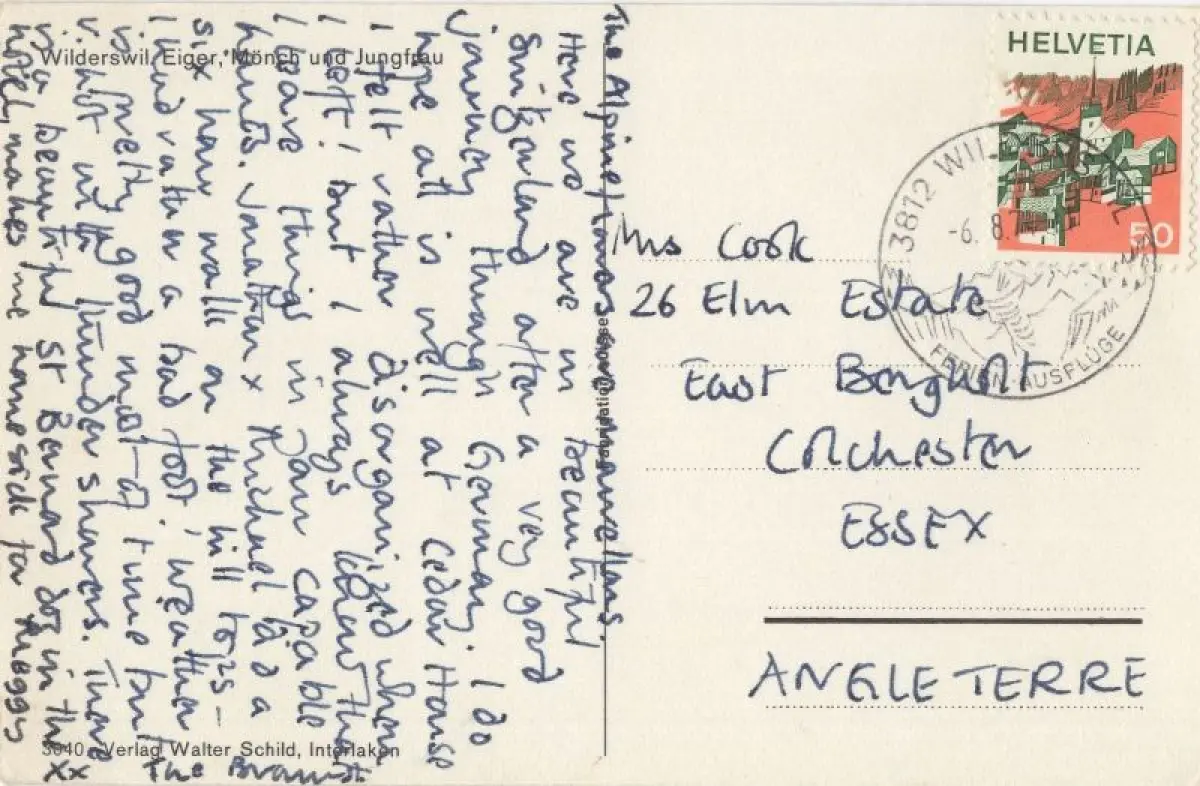 Wilderswil, Eiger, Mönch und Jungfrau
The Alpine flowers are marvellous.
Here we are in beautiful
Switzerland after a very good
journey through Germany. I do
hope all is well at Cedar House
I felt rather disorganized when
I left! but I always know that
I leave things in your capable
hands. Jonathan x Michael did a
six hour walk on the hill to 25 –
I had rather a bad foot! weather
is pretty good most of time but
v. hot with thunder showers. There
is a beautiful St Bernard dog in the
hotel, makes me homesick for Meggy
xx The
3040 - Verlag Walter Schild, Interlaken
HELVETIA
50
3812 WIL
-6.8.7
FERIEN AUSFLÜGE
Mrs Cook
26 Elm Estate
East Bergholt
Colchester
ESSEX
ANGLETERRE